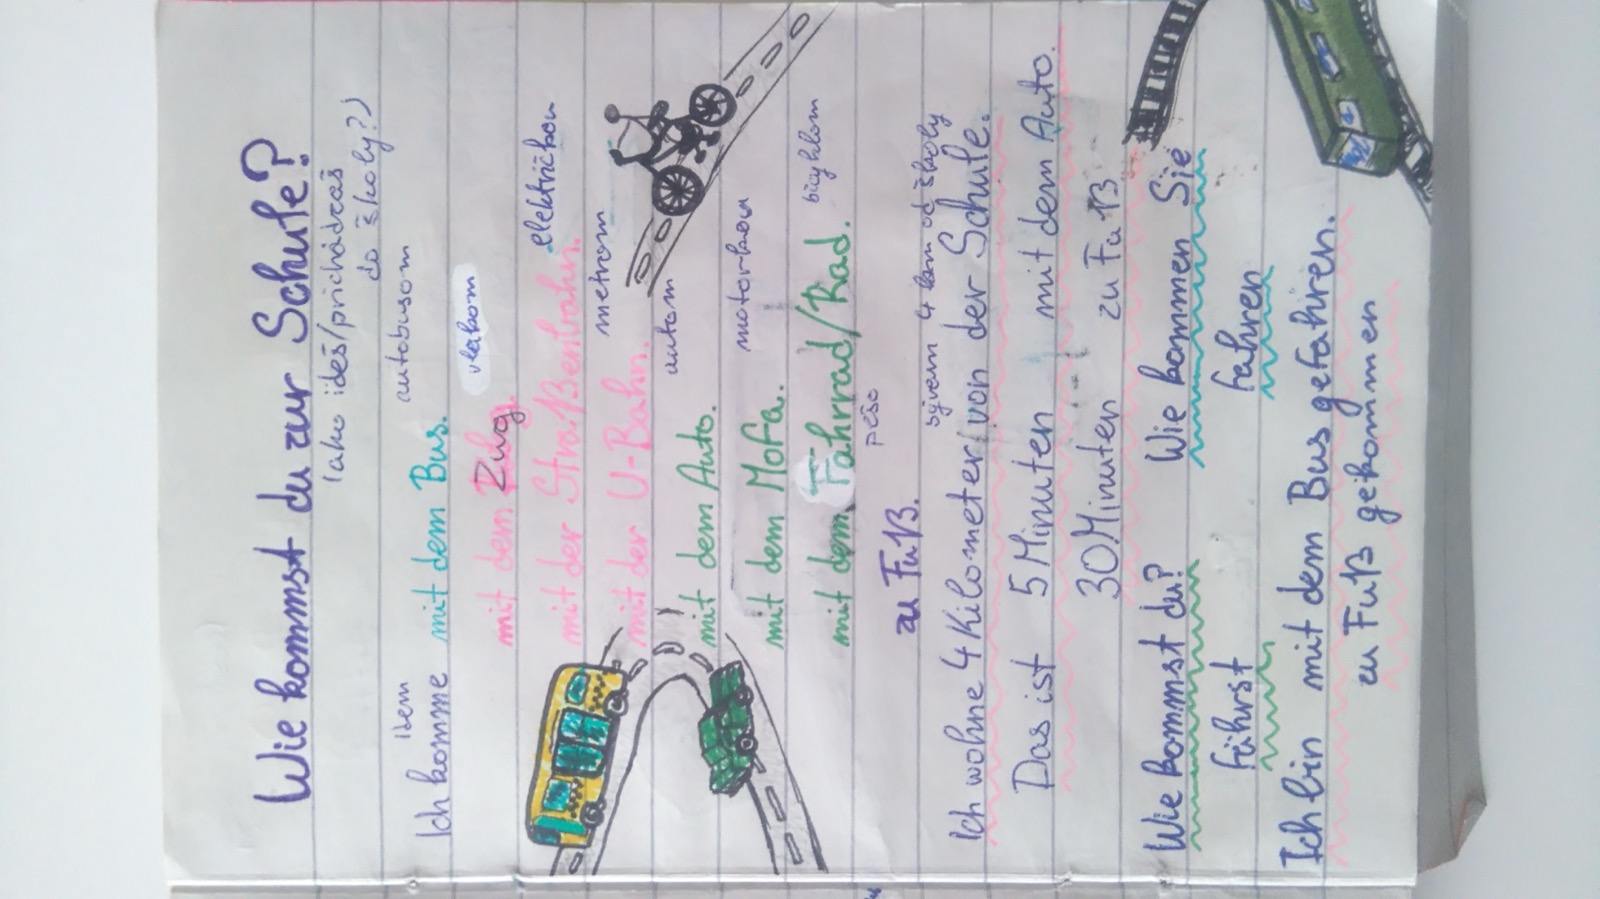 Wie kommst du zur Schule?
(ako ideš/prichádzaš
do školy?)
idem autobusom
Ich komme mit dem Bus.
vlakom
mit dem Zug.
električkou
mit der Straßenbahn.
metrom
mit der U-Bahn.
autom
mit dem Auto.
motorkou
mit dem Mofa.
bicyklom
mit dem Fahrrad/Rad.
pešo
zu Fuß.
bývam 4 km od školy
Ich wohne 4 Kilometer von der Schule.
Das ist 5 Minuten mit dem Auto.
30 Minuten zu Fuß
Wie kommst du? Wie kommen Sie
fährst fahren
Ich bin mit dem Bus gefahren.
zu Fuß gekommen